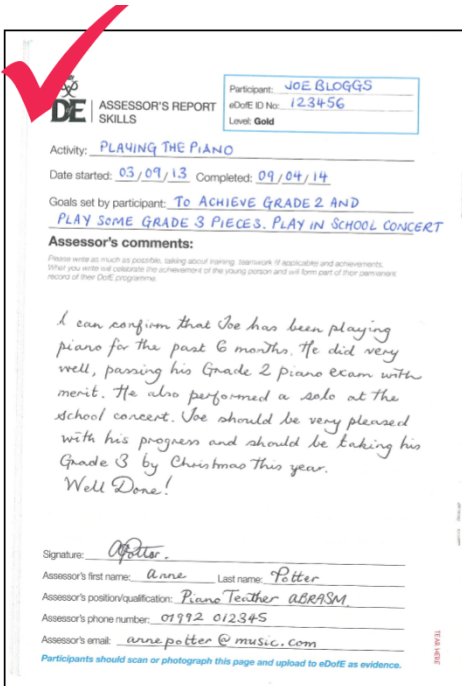 Participant: JOE BLOGGS
eDofE ID No: 123456
Level: Gold
DE
ASSESSOR'S REPORT
SKILLS
Activity: PLAYING THE PIANO
Date started: 03/09/13 Completed: 09/04/14
Goals set by participant: TO ACHIEVE GRADE 2 AND
PLAY SOME GRADE 3 PIECES. PLAY IN SCHOOL CONCERT
Assessor's comments:
Please write as much as possible, talking about training, teamwork if applicable and achievements.
What you write will celebrate the achievement of the young person and will form part of their permanent
record of their DofE programme.
I can confirm that Joe has been playing
piano for the past 6 months. He did very
well, passing his Grade 2 piano exam with
merit. He also performed a solo at the
school concert. Joe should be very pleased
with his progress and should be taking his
Grade 3 by Christmas this year.
Well Done!
Signature: APotter.
Assessor's first name: Anne Last name: Potter
Assessor's position/qualification: Piano Teather ABRASM.
Assessor's phone number: 01992 012345
Assessor's email: annepotter@music.com
Participants should scan or photograph this page and upload to eDofE as evidence.
TEAR HERE